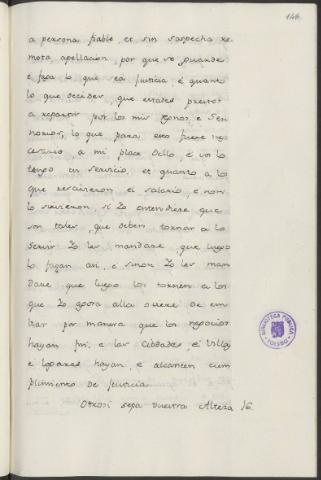 146.
a persona fiable, et sin sospecha re-
mota apellacion, por que yo mande
e faga lo que sea justicia, e quanto
lo que decides, que estades prestos
a repartir por los mis Reynos, e Sen-
norios, lo que para esto fuere ne-
cesario a mi place dello, e vos lo
tengo en servicio, et quanto a lo
que rescivieron el salario, e non
lo sirvieron, si Yo entendiere que
son tales, que deben tornar a lo
servir Yo les mandare, que luego
lo fagan asi, e sinon Yo les man-
dare que luego los tornen a los
que Yo agora alla oviere de em-
biar por manera que los negocios
hayan fin, e las Cibdades, e Villas,
e Logares hayan, e alcancen cum-
plimiento de Justicia.
Otrosi sepa vuestra Alteza
BIBLIOTECA PUBLICA
TOLEDO